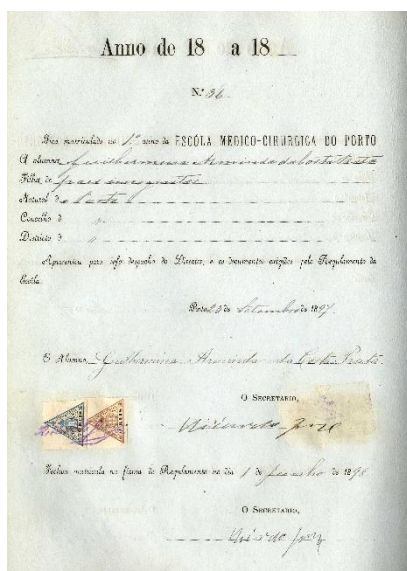 Anno de 18 a 18
N.º 36
Fica matriculado no 1º anno da ESCÓLA MEDICO-CIRURGICA DO PORTO
A alumna Guilhermina Arminda da Costa Prata
Filha de paes incognitos
Natural d
Concelho d "
Districto d "
Apresentou para isso despacho do Director, e os documentos exigidos pelo Regulamento da
Escóla.
Porto 23 de Setembro de 1897.
O Alumno, Guilhermina Arminda da Costa Prata
O SECRETARIO,
Fechou matricula na fórma do Regulamento no dia 1 de Junho de 1898
O SECRETARIO,